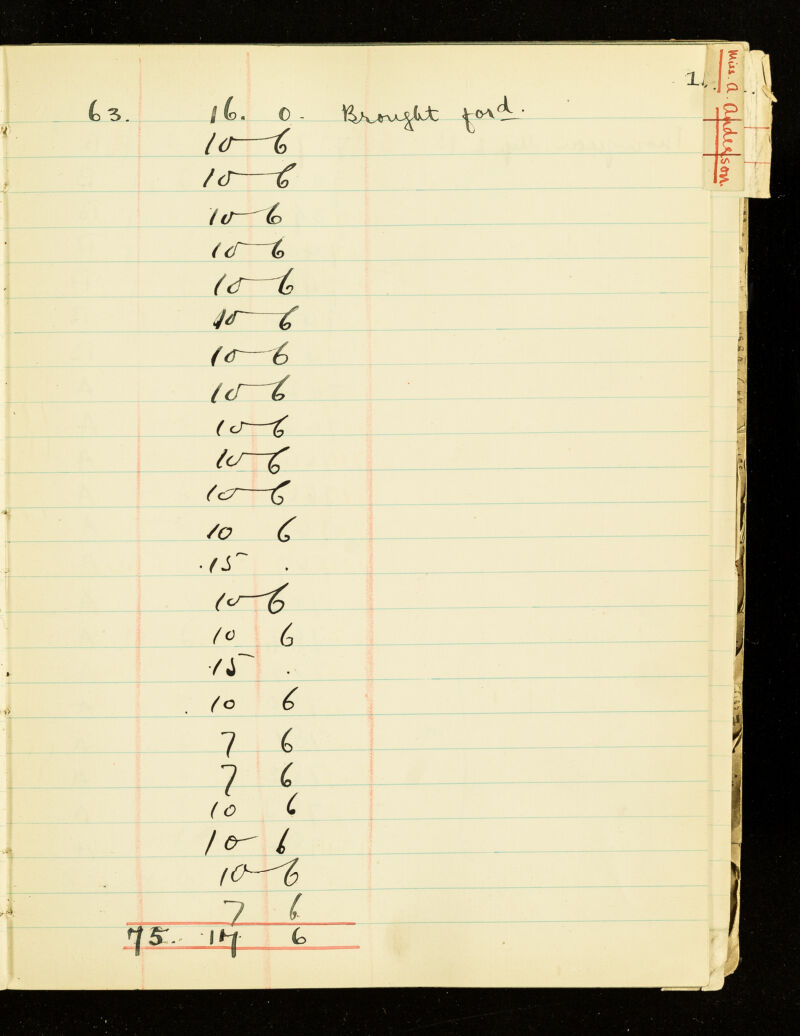 1.
Miss. A. Anderson.
63. 16. 0. Brought ford.
10 6
10 6
10 6
10 6
10 6
10 6
10 6
10 6
10 6
10 6
10 6
10 6
15 .
10 6
10 6
15 .
10 6
7 6
7 6
10 6
10 6
10 6
7 6
75. 17 6